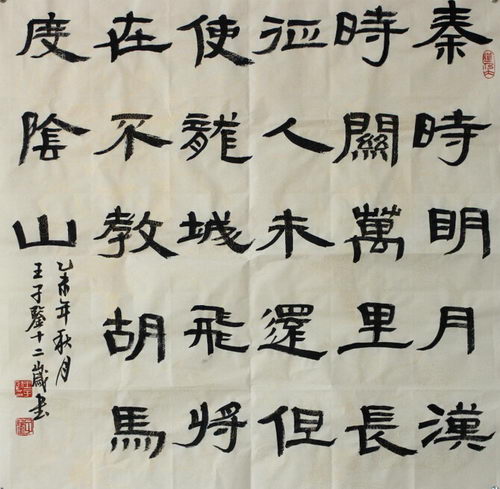 秦時明月漢
時關萬里長
征人未還但
使龍城飛將
在不教胡馬
度陰山
乙未年秋月
王子十二歲書